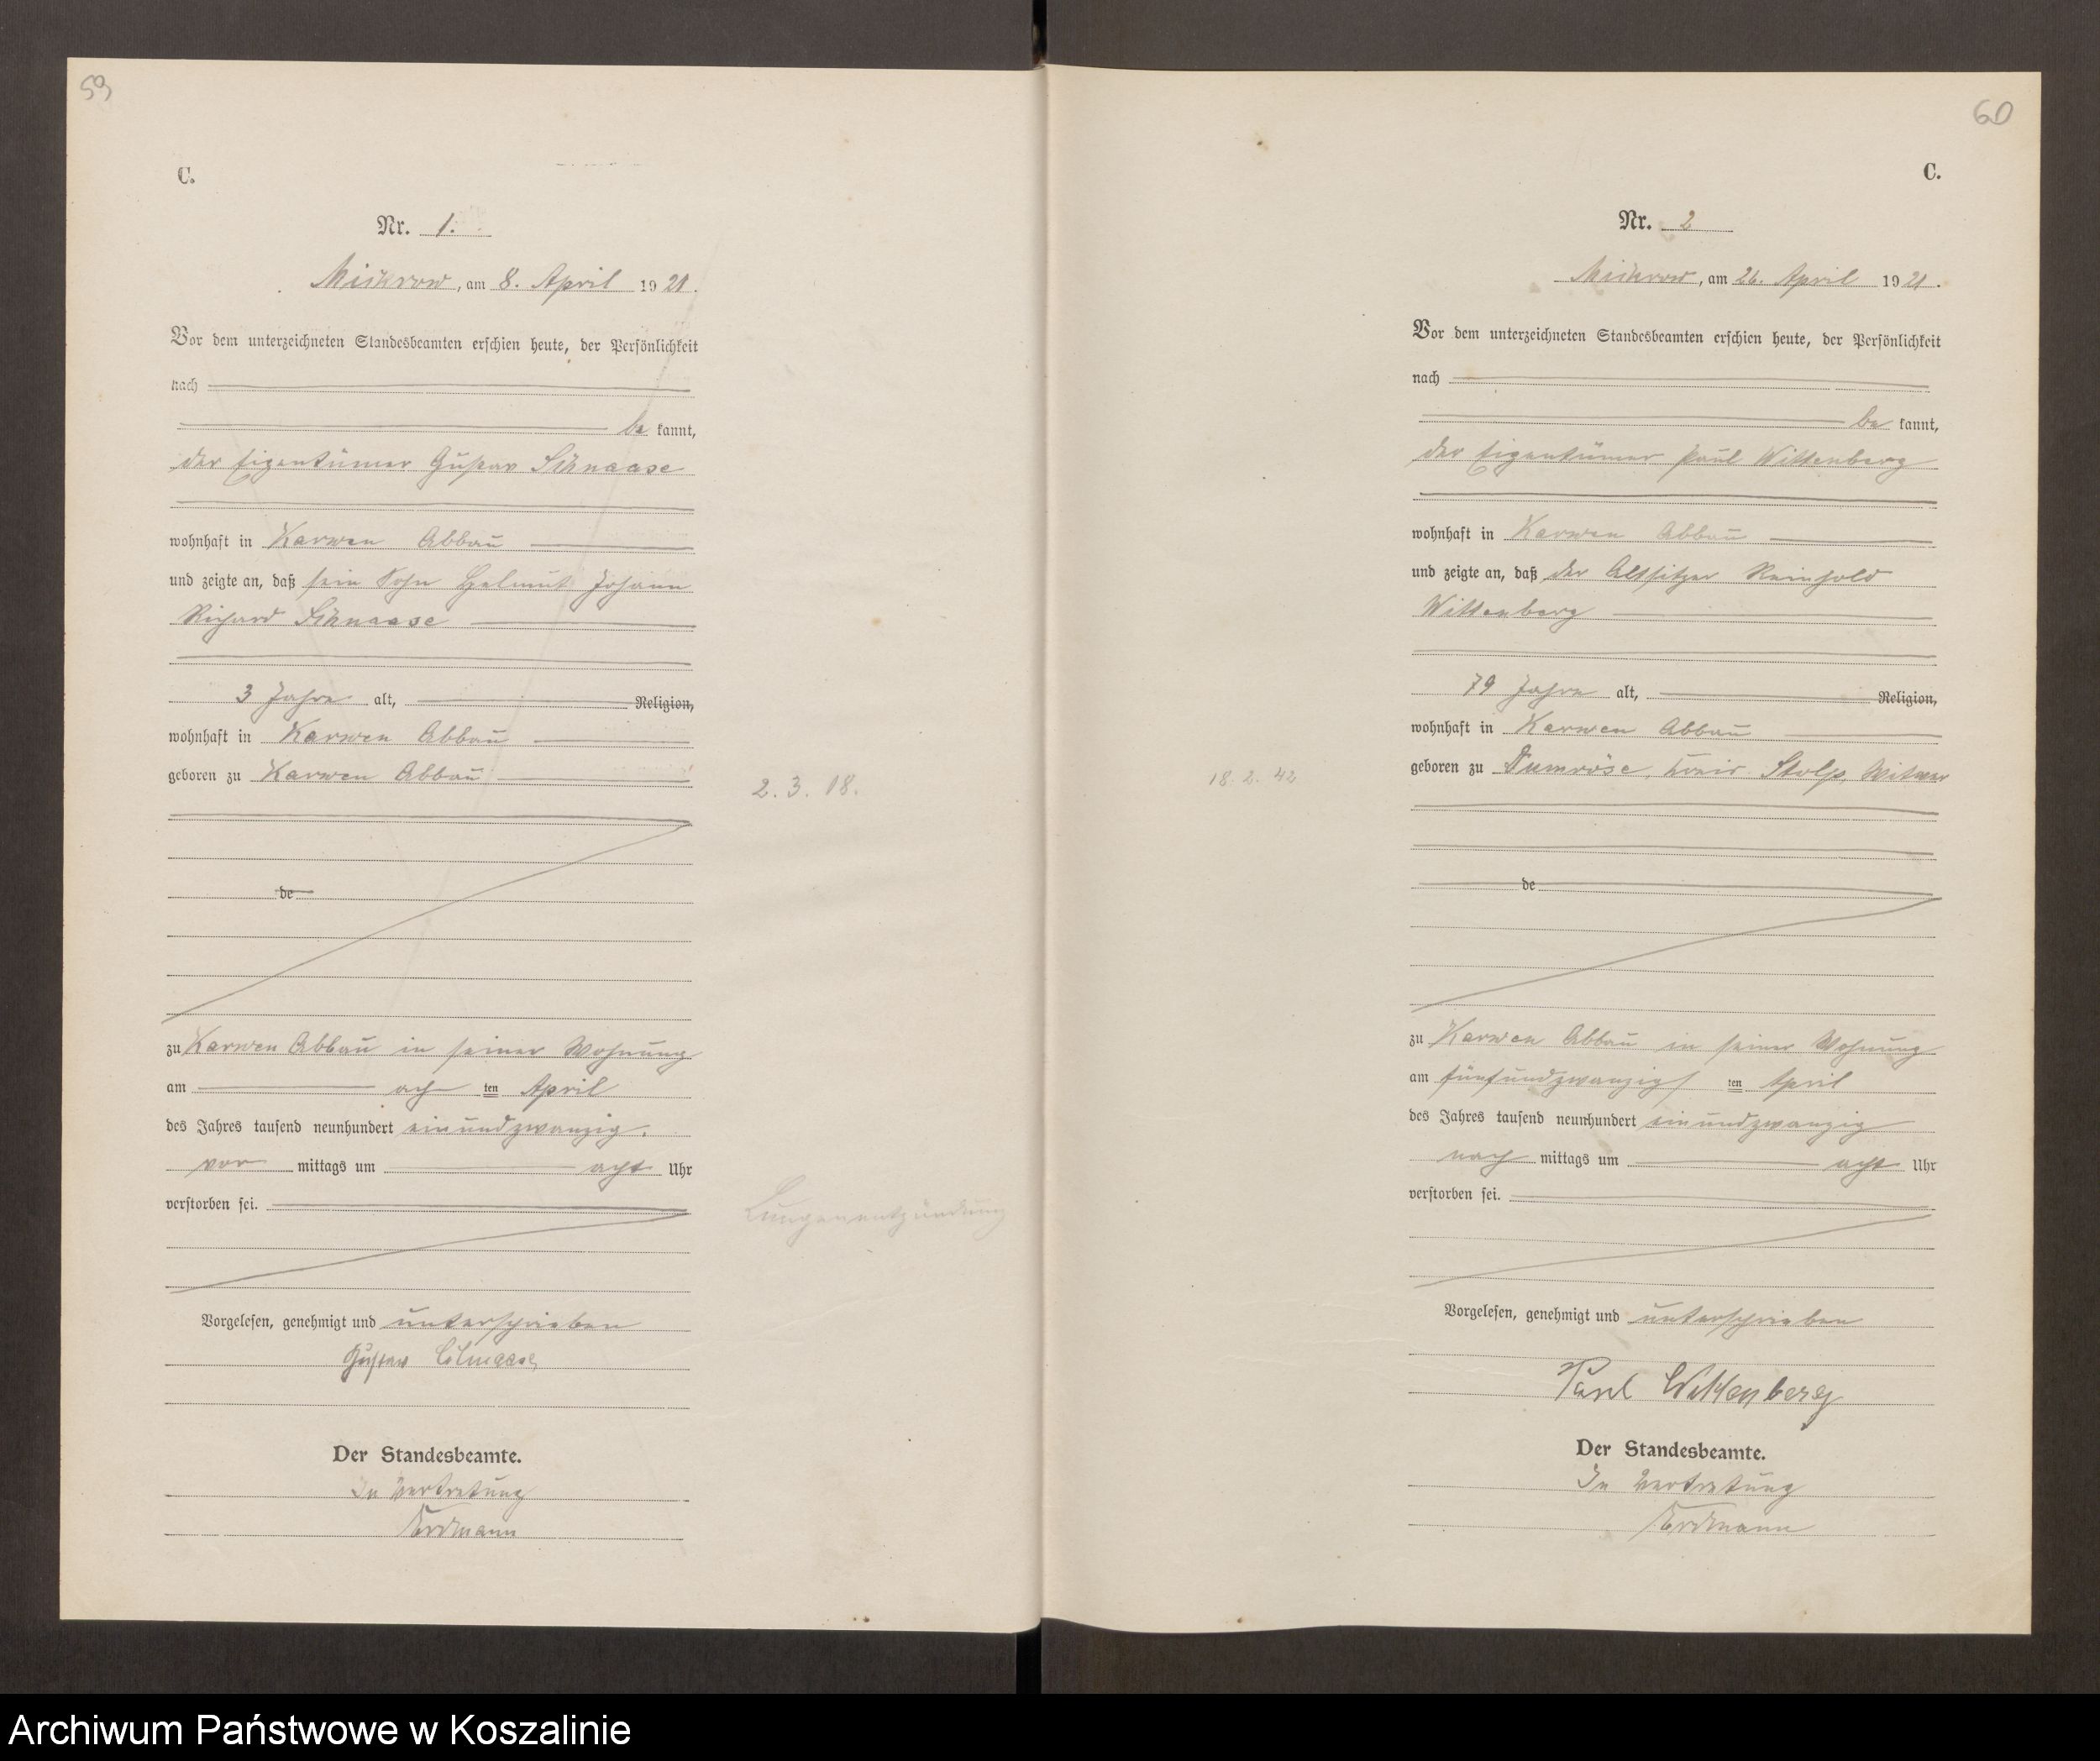 59
C.
Nr. 1.
Mickrow, am 8. April 1921.
Vor dem unterzeichneten Standesbeamten erschien heute, der Persönlichkeit
nach
be kannt,
der Eigentümer Gustav Schnaase
wohnhaft in Karwen Abbau
und zeigte an, daß sein Sohn Helmut Johann
Richard Schnaase
3 Jahre alt, Religion,
wohnhaft in Karwen Abbau
geboren zu Karwen Abbau
2. 3. 18.
de
zu Karwen Abbau in seiner Wohnung
am ach ten April
des Jahres tausend neunhundert einundzwanzig.
vor mittags um acht Uhr
verstorben sei.
Lungenentzündung
Vorgelesen, genehmigt und unterschrieben
Gustav Schnaase
Der Standesbeamte.
In Vertretung
Erdmann
60
C.
Nr. 2
Mickrow, am 26. April 1921.
Vor dem unterzeichneten Standesbeamten erschien heute, der Persönlichkeit
nach
be kannt,
der Eigentümer Paul Wittenberg
wohnhaft in Karwen Abbau
und zeigte an, daß der Altsitzer Reinhold
Wittenberg
79 Jahre alt, Religion,
wohnhaft in Karwen Abbau
geboren zu Dumröse, Kreis Stolp, Witwer
18. 2. 42
de
zu Karwen Abbau in seiner Wohnung
am fünfundzwanzigs ten April
des Jahres tausend neunhundert einundzwanzig
nach mittags um acht Uhr
verstorben sei.
Vorgelesen, genehmigt und unterschrieben
Paul Wittenberg
Der Standesbeamte.
In Vertretung
Erdmann
Archiwum Państwowe w Koszalinie